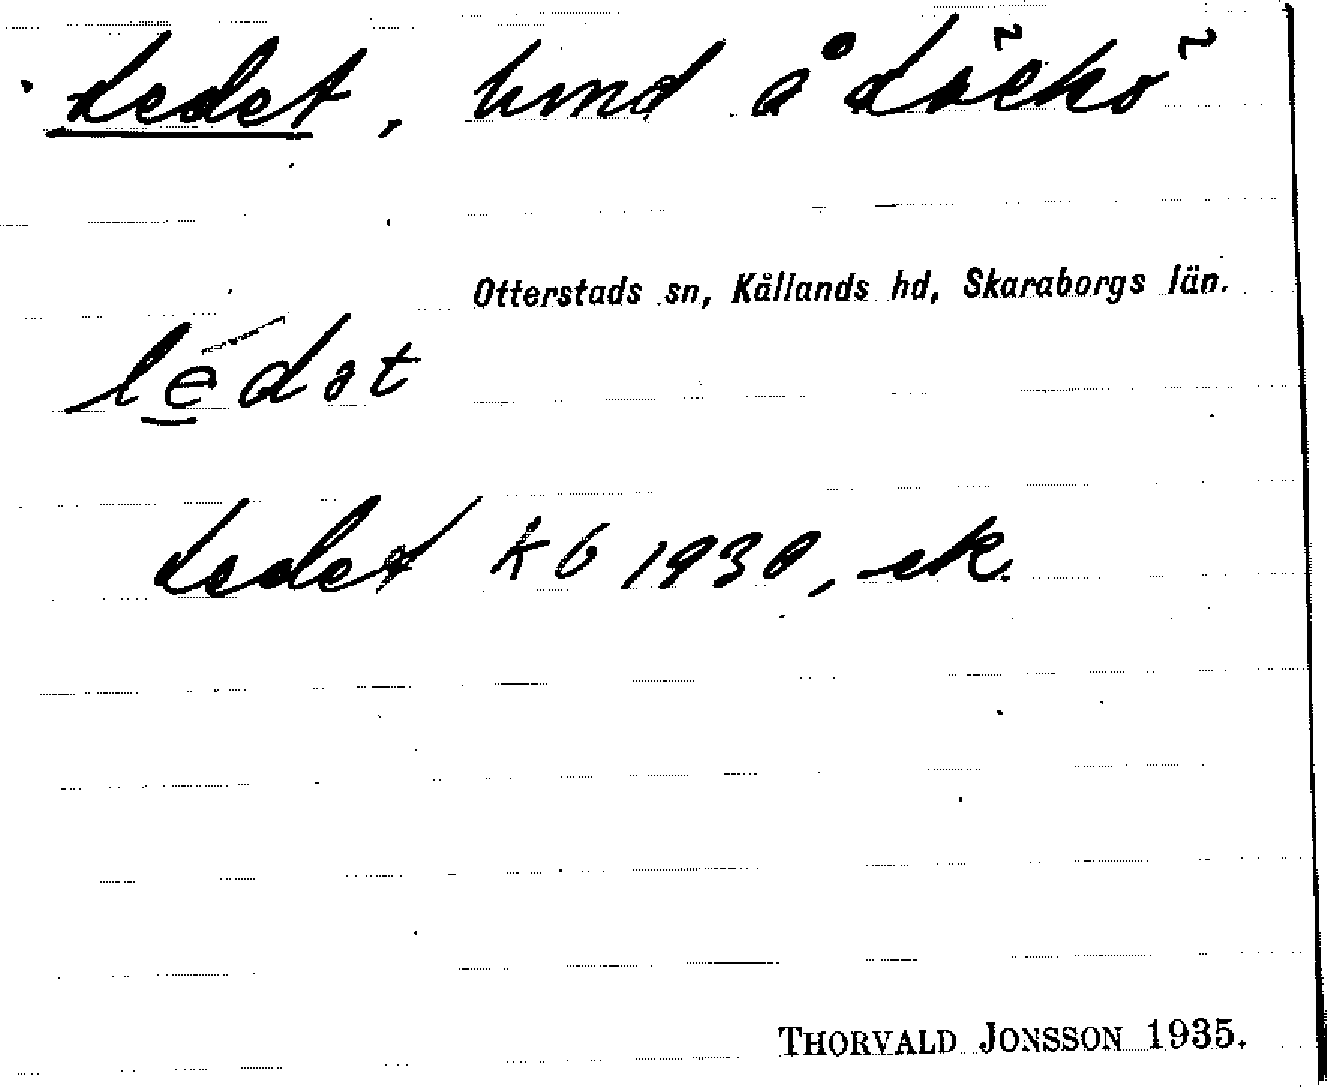 Ledet, lmd å Läckö
Otterstads sn, Kållands hd, Skaraborgs län.
lédət
Ledet kb 1930, ek.
THORVALD JONSSON 1935.